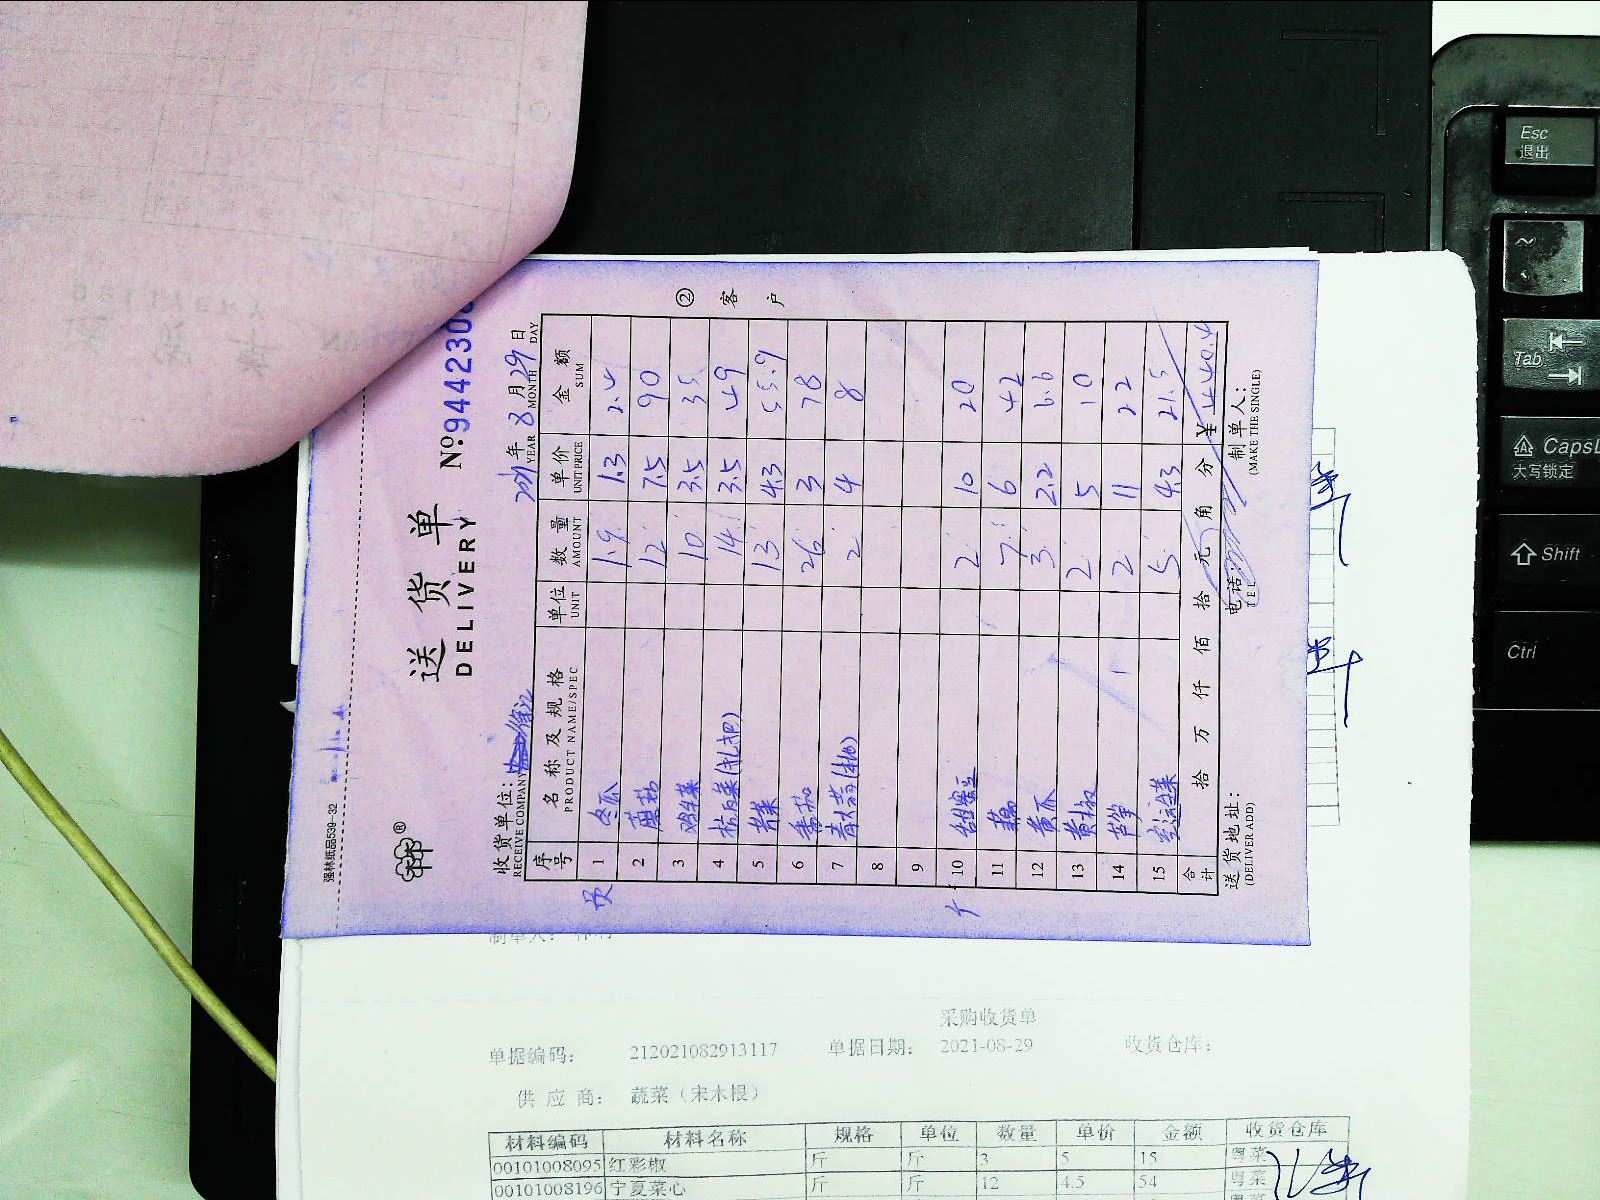 强林纸品539-32
送货单
DELIVERY
№9442308
收货单位:
RECEIVE COMPANY
2021年8月29日
YEAR MONTH DAY
序号 名称及规格 单位 数量 单价 金额
PRODUCT NAME/SPEC UNIT AMOUNT UNIT PRICE SUM
1 冬瓜 1.9 1.3 2.4
2 蘑菇 12 7.5 90
3 10 3.5 35
4 14 3.5 49
5 菜 13 4.3 55.9
6 番茄 26 3 78
7 2 4 8
8
9
10 2 10 20
11 藕 7 6 42
12 黄瓜 3 2.2 6.6
13 黄椒 2 5 10
14 芦笋 2 11 22
15 5 4.3 21.5
合计 拾 万 仟 佰 拾 元 角 分 ¥440.4
送货地址:
(DELIVER ADD)
电话:
TEL
制单人:
(MAKE THE SINGLE)
② 客户
采购收货单
单据编码: 212021082913117 单据日期: 2021-08-29 收货仓库:
供应商: 蔬菜(宋木根)
材料编码 材料名称 规格 单位 数量 单价 金额 收货仓库
00101008095 红彩椒 斤 斤 3 5 15 粤菜
00101008196 宁夏菜心 斤 斤 12 4.5 54 粤菜
Esc
退出
~
Tab
CapsL
大写锁定
Shift
Ctrl